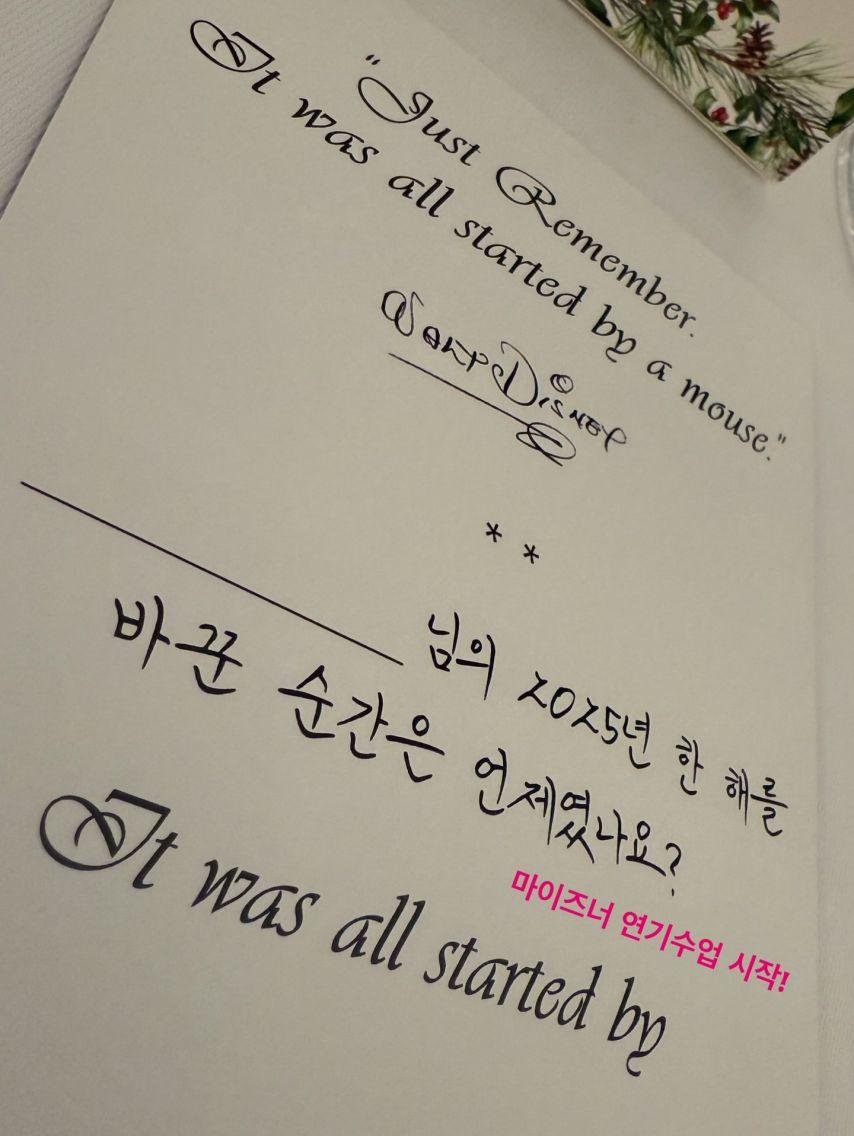 "Just Remember.
It was all started by a mouse."
Walt Disney
* *
님의 2025년 한 해를
바꾼 순간은 언제였나요?
마이즈너 연기수업 시작!
It was all started by